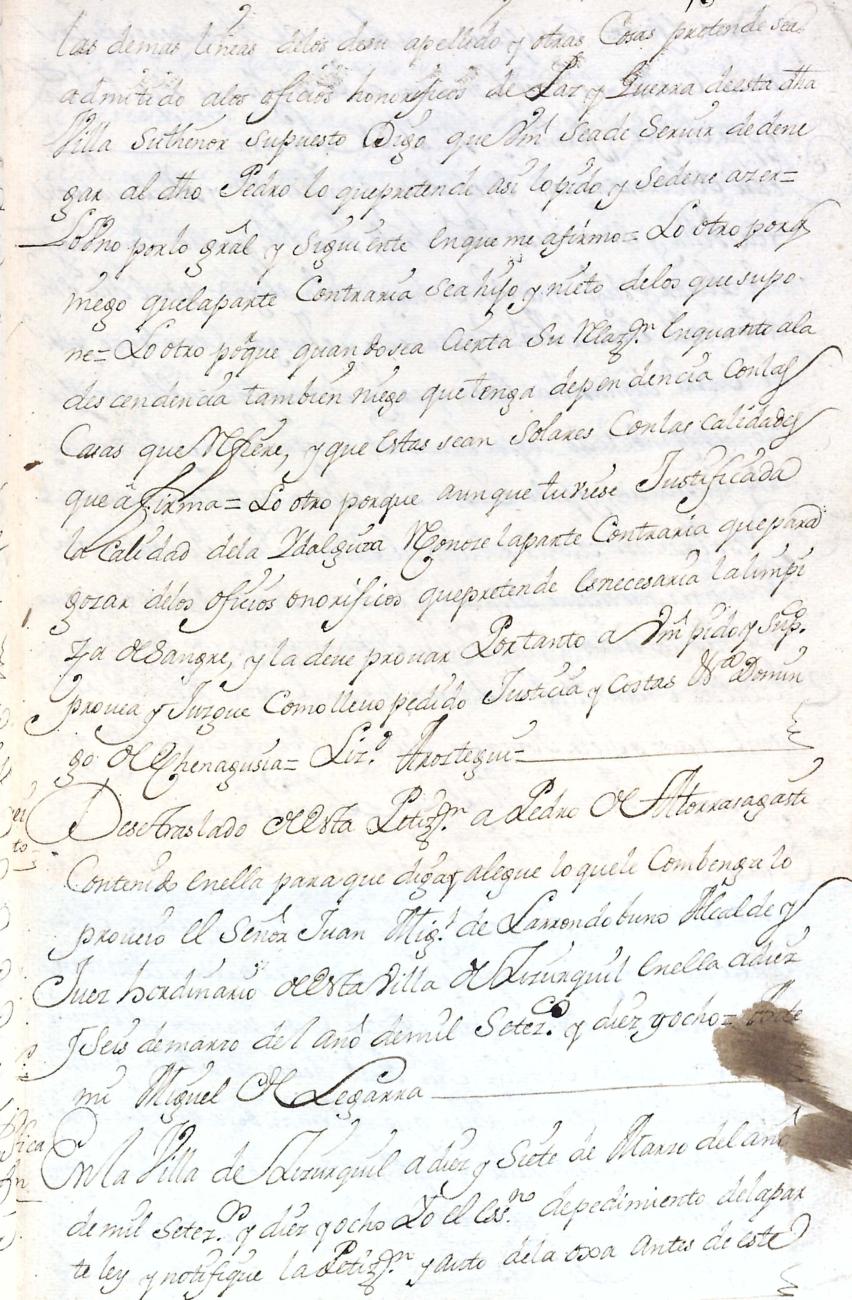 las demas lineas delos desu apellido y otras Cosas pretende sea
admitido alos oficios honorificos de Paz y Guerra deesta dha
Villa suthenor supuesto Digo que Vm seade Servir dedene
gar al dho Pedro lo quepretende asi lo pido y Sedeve azer=
Lo Vno porlo gral y Siguiente Enque me afirmo= Lo otro porq
niego quelaparte Contraria sea hijo y nieto delos que supo
ne= Lo otro porque quando sea Cierta Su Relazn. Enquanto ala
descendencia tambien niego que tenga dependencia Conlas
Casas que Refiere, y que Estas sean Solares Conlas Calidades
que afirma= Lo otro porque aunque tuviese Justificada
la Calidad dela Ydalguia Reconoze laparte Contraria que para
gozar delos oficios onorificos que pretende Esnecesaria lalimpi
eza de Sangre, y la deve provar Portanto a Vm pido y sup.
provea y Juzgue Como llevo pedido Justicia y Costas Domin
go de Echenagusia= Liz.do Aroztegui=
Dese traslado de Esta Petizn. a Pedro de Atorrasagasti
Contenido Enella para que diga y alegue lo quele Combenga lo
proveio El Señor Juan Migl. de Larrondobuno Alcalde y
Juez hordinario de Esta Villa de Lizurquil Enella adiez
y Seis demarzo del año demil Setez.os y diez y ocho= Ante
mi Miguel de Legarra
En la Villa de Lizurquil a diez y Siete de Marzo del año
de mil Setez.os y diez y ocho Yo el Ess.no de pedimiento delapar
te ley y notifique la Petizn. y auto dela oxa antes de este